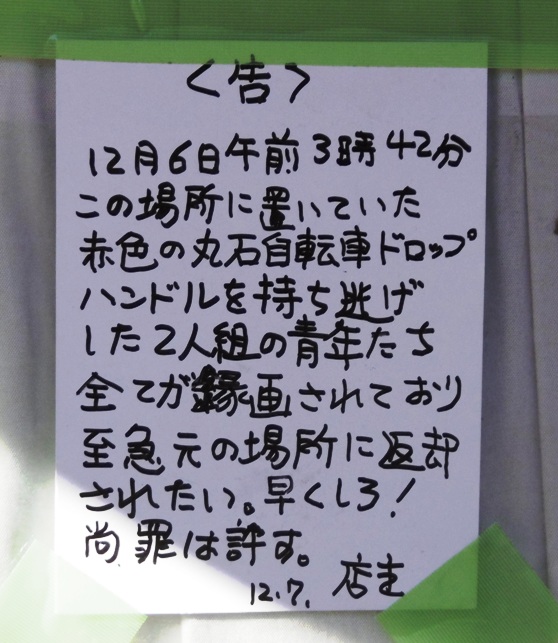 <告>
12月6日午前3時42分
この場所に置いていた
赤色の丸石自転車ドロップ
ハンドルを持ち逃げ
した2人組の青年たち
全てが録画されており
至急元の場所に返却
されたい。早くしろ!
尚罪は許す。
12.7. 店主